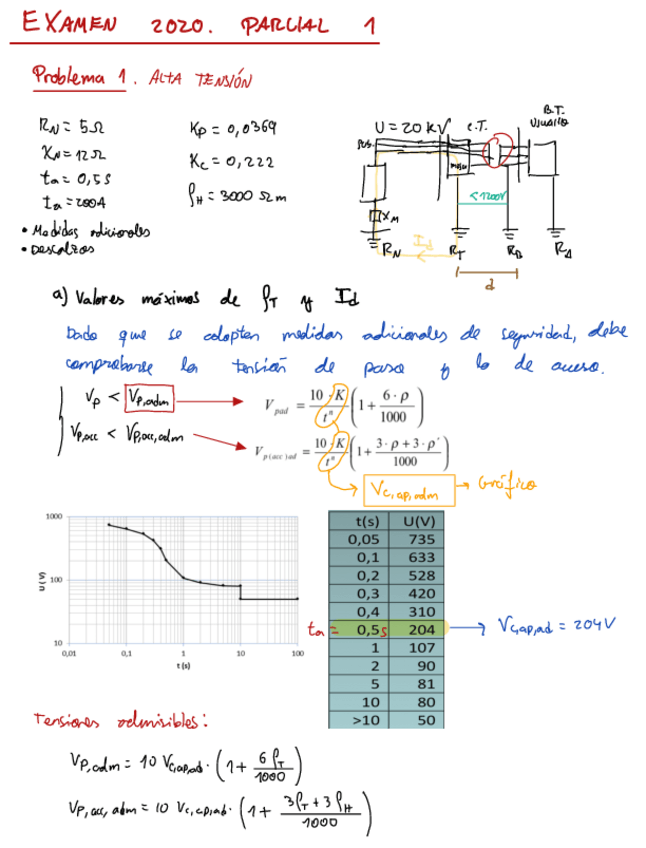 EXAMEN 2020. PARCIAL 1
Problema 1. ALTA TENSIÓN
R_N = 5 Ω
X_N = 12 Ω
ta = 0,5 s
ta = 200A
• Medidas adicionales
• Descalzos
K_P = 0,0369
K_C = 0,222
ρ_H = 3000 Ωm
U = 20 kV
C.T.
B.T.
Usuario
X_M
<1200V
I_d
R_N
R_T
R_B
R_A
d
a) Valores máximos de ρ_T y I_d
Dado que se adoptan medidas adicionales de seguridad, debe
comprobarse la tensión de paso y la de acceso.
V_p < V_p,adm
V_p,acc < V_p,acc,adm
V_pad = 10·K/t^n (1 + 6·ρ/1000)
V_p(acc)ad = 10·K/t^n (1 + 3·ρ+3·ρ'/1000)
V_c,ap,adm → Gráfico
1000
100
10
U (V)
0,01 0,1 1 10 100
t (s)
t(s) U(V)
0,05 735
0,1 633
0,2 528
0,3 420
0,4 310
ta = 0,5s 204 → V_c,ap,ad = 204V
1 107
2 90
5 81
10 80
>10 50
Tensiones admisibles:
V_p,adm = 10 V_c,ap,ad · (1 + 6ρ_T/1000)
V_p,acc,adm = 10 V_c,ap,ad · (1 + 3ρ_T + 3ρ_H/1000)